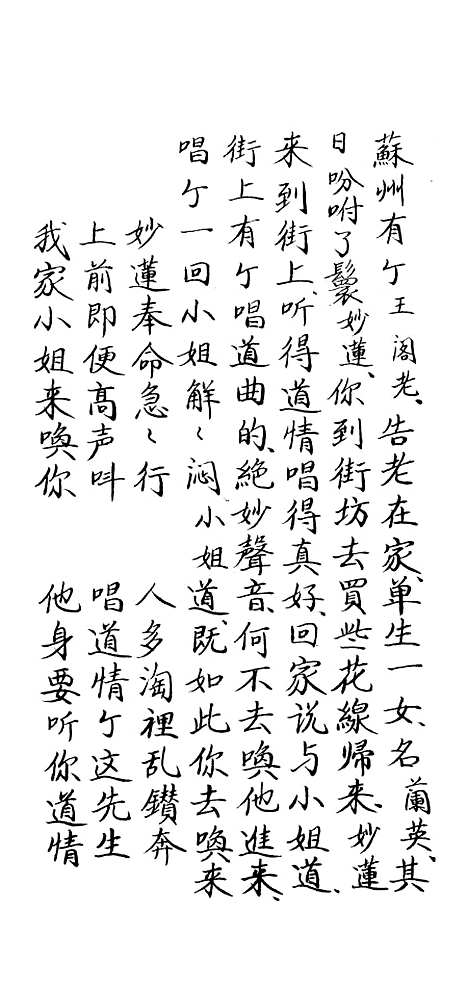 蘇州有亇王阁老、告老在家、单生一女、名蘭英、其
日吩咐了鬟妙蓮、你到街坊去買些花線归来、妙蓮
来到街上、听得道情唱得真好、回家说与小姐道、
街上有亇唱道曲的、絕妙聲音、何不去喚他進来、
唱亇一回小姐解〻闷小姐道、既如此你去喚来
妙蓮奉命急〻行　人多淘裡乱鑚奔
上前即便高声叫　唱道情亇这先生
我家小姐来喚你　他身要听你道情